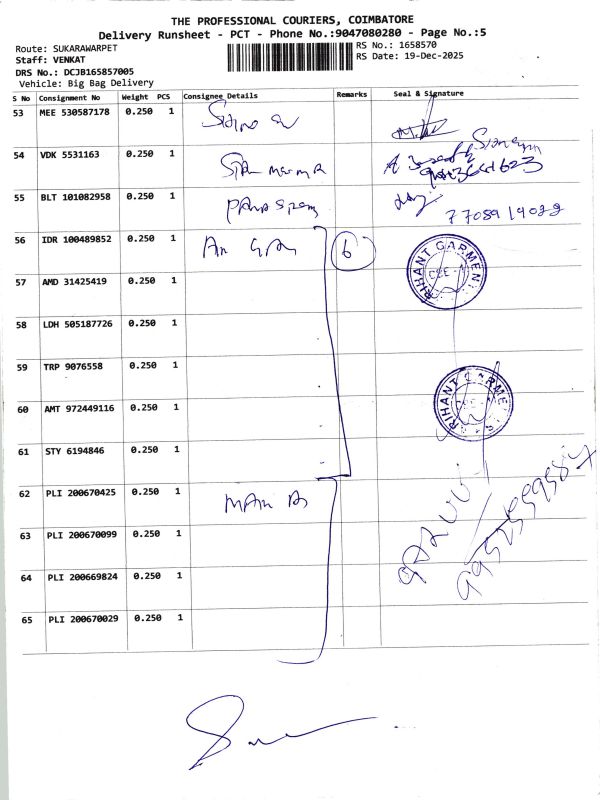 THE PROFESSIONAL COURIERS, COIMBATORE
Delivery Runsheet - PCT - Phone No.:9047080280 - Page No.:5
Route: SUKARAWARPET
RS No.: 1658570
Staff: VENKAT
RS Date: 19-Dec-2025
DRS No.: DCJB165857005
Vehicle: Big Bag Delivery
S No Consignment No Weight PCS Consignee Details Remarks Seal & Signature
53 MEE 530587178 0.250 1
54 VDK 5531163 0.250 1
55 BLT 101082958 0.250 1
7708919022
56 IDR 100489852 0.250 1 6
RIHANT GARMEN
57 AMD 31425419 0.250 1
58 LDH 505187726 0.250 1
59 TRP 9076558 0.250 1
RIHANT GARME
60 AMT 972449116 0.250 1
61 STY 6194846 0.250 1
62 PLI 200670425 0.250 1
63 PLI 200670099 0.250 1
64 PLI 200669824 0.250 1
65 PLI 200670029 0.250 1